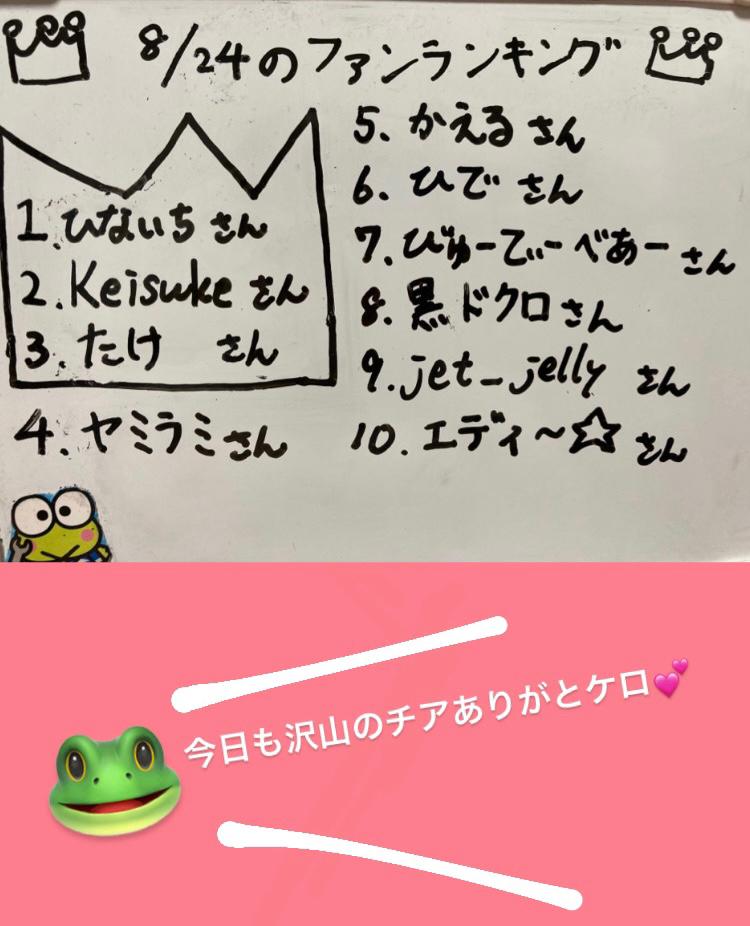 8/24のファンランキング
1.ひないちさん
2.Keisukeさん
3.たけ さん
4.ヤミラミさん
5、かえるさん
6.ひでさん
7.びゅーてぃーべあーさん
8.黒ドクロさん
9.jet_jelly さん
10.エディ～☆さん
今日も沢山のチアありがとケロ💕